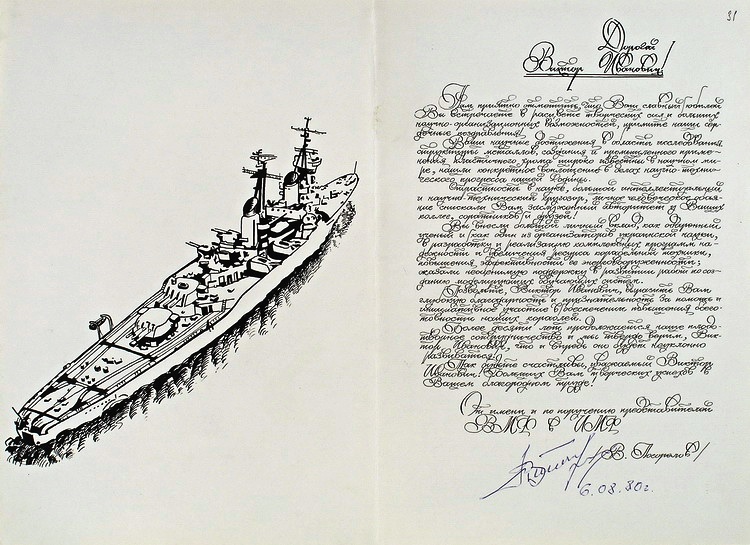 31
Дорогой
Виктор Иванович!
Нам приятно отметить, что Ваш славный юбилей
Вы встречаете в расцвете творческих сил и больших
научно-организационных возможностей, примите наши сер-
дечные поздравления!
Ваши научные достижения в области исследования
структуры металлов, создания и промышленного приме-
нения пластичного хрома широко известны в научном ми-
ре, нашли конкретное воплощение в делах научно-техни-
ческого прогресса нашей Родины.
Страстность в науке, большой интеллектуальный
и научно-технический кругозор, личное человеческое обая-
ние снискали Вам заслуженный авторитет у Ваших
коллег, соратников и друзей.
Вы внесли большой личный вклад, как одаренный
учёный и как один из организаторов украинской науки,
в разработку и реализацию комплексных программ на-
дежности и увеличения ресурса корабельной техники,
повышения эффективности её энерговооруженности;
оказали неоценимую поддержку в развитии работ по соз-
данию моделирующих обучающих систем.
Позвольте, Виктор Иванович, выразить Вам
глубокую благодарность и признательность за помощь и
инициативное участие в обеспечении повышения боего-
товности наших кораблей.
Более десяти лет продолжается наше плодо-
творное сотрудничество и мы твердо верим, Вик-
тор Иванович, что и впредь оно будет неуклонно
развиваться!
Так будьте счастливы, уважаемый Виктор
Иванович! Больших Вам творческих успехов в
Вашем благородном труде!
От имени и по поручению представителей
ВМФ в ИМФ
/В. /
6.08.80г.